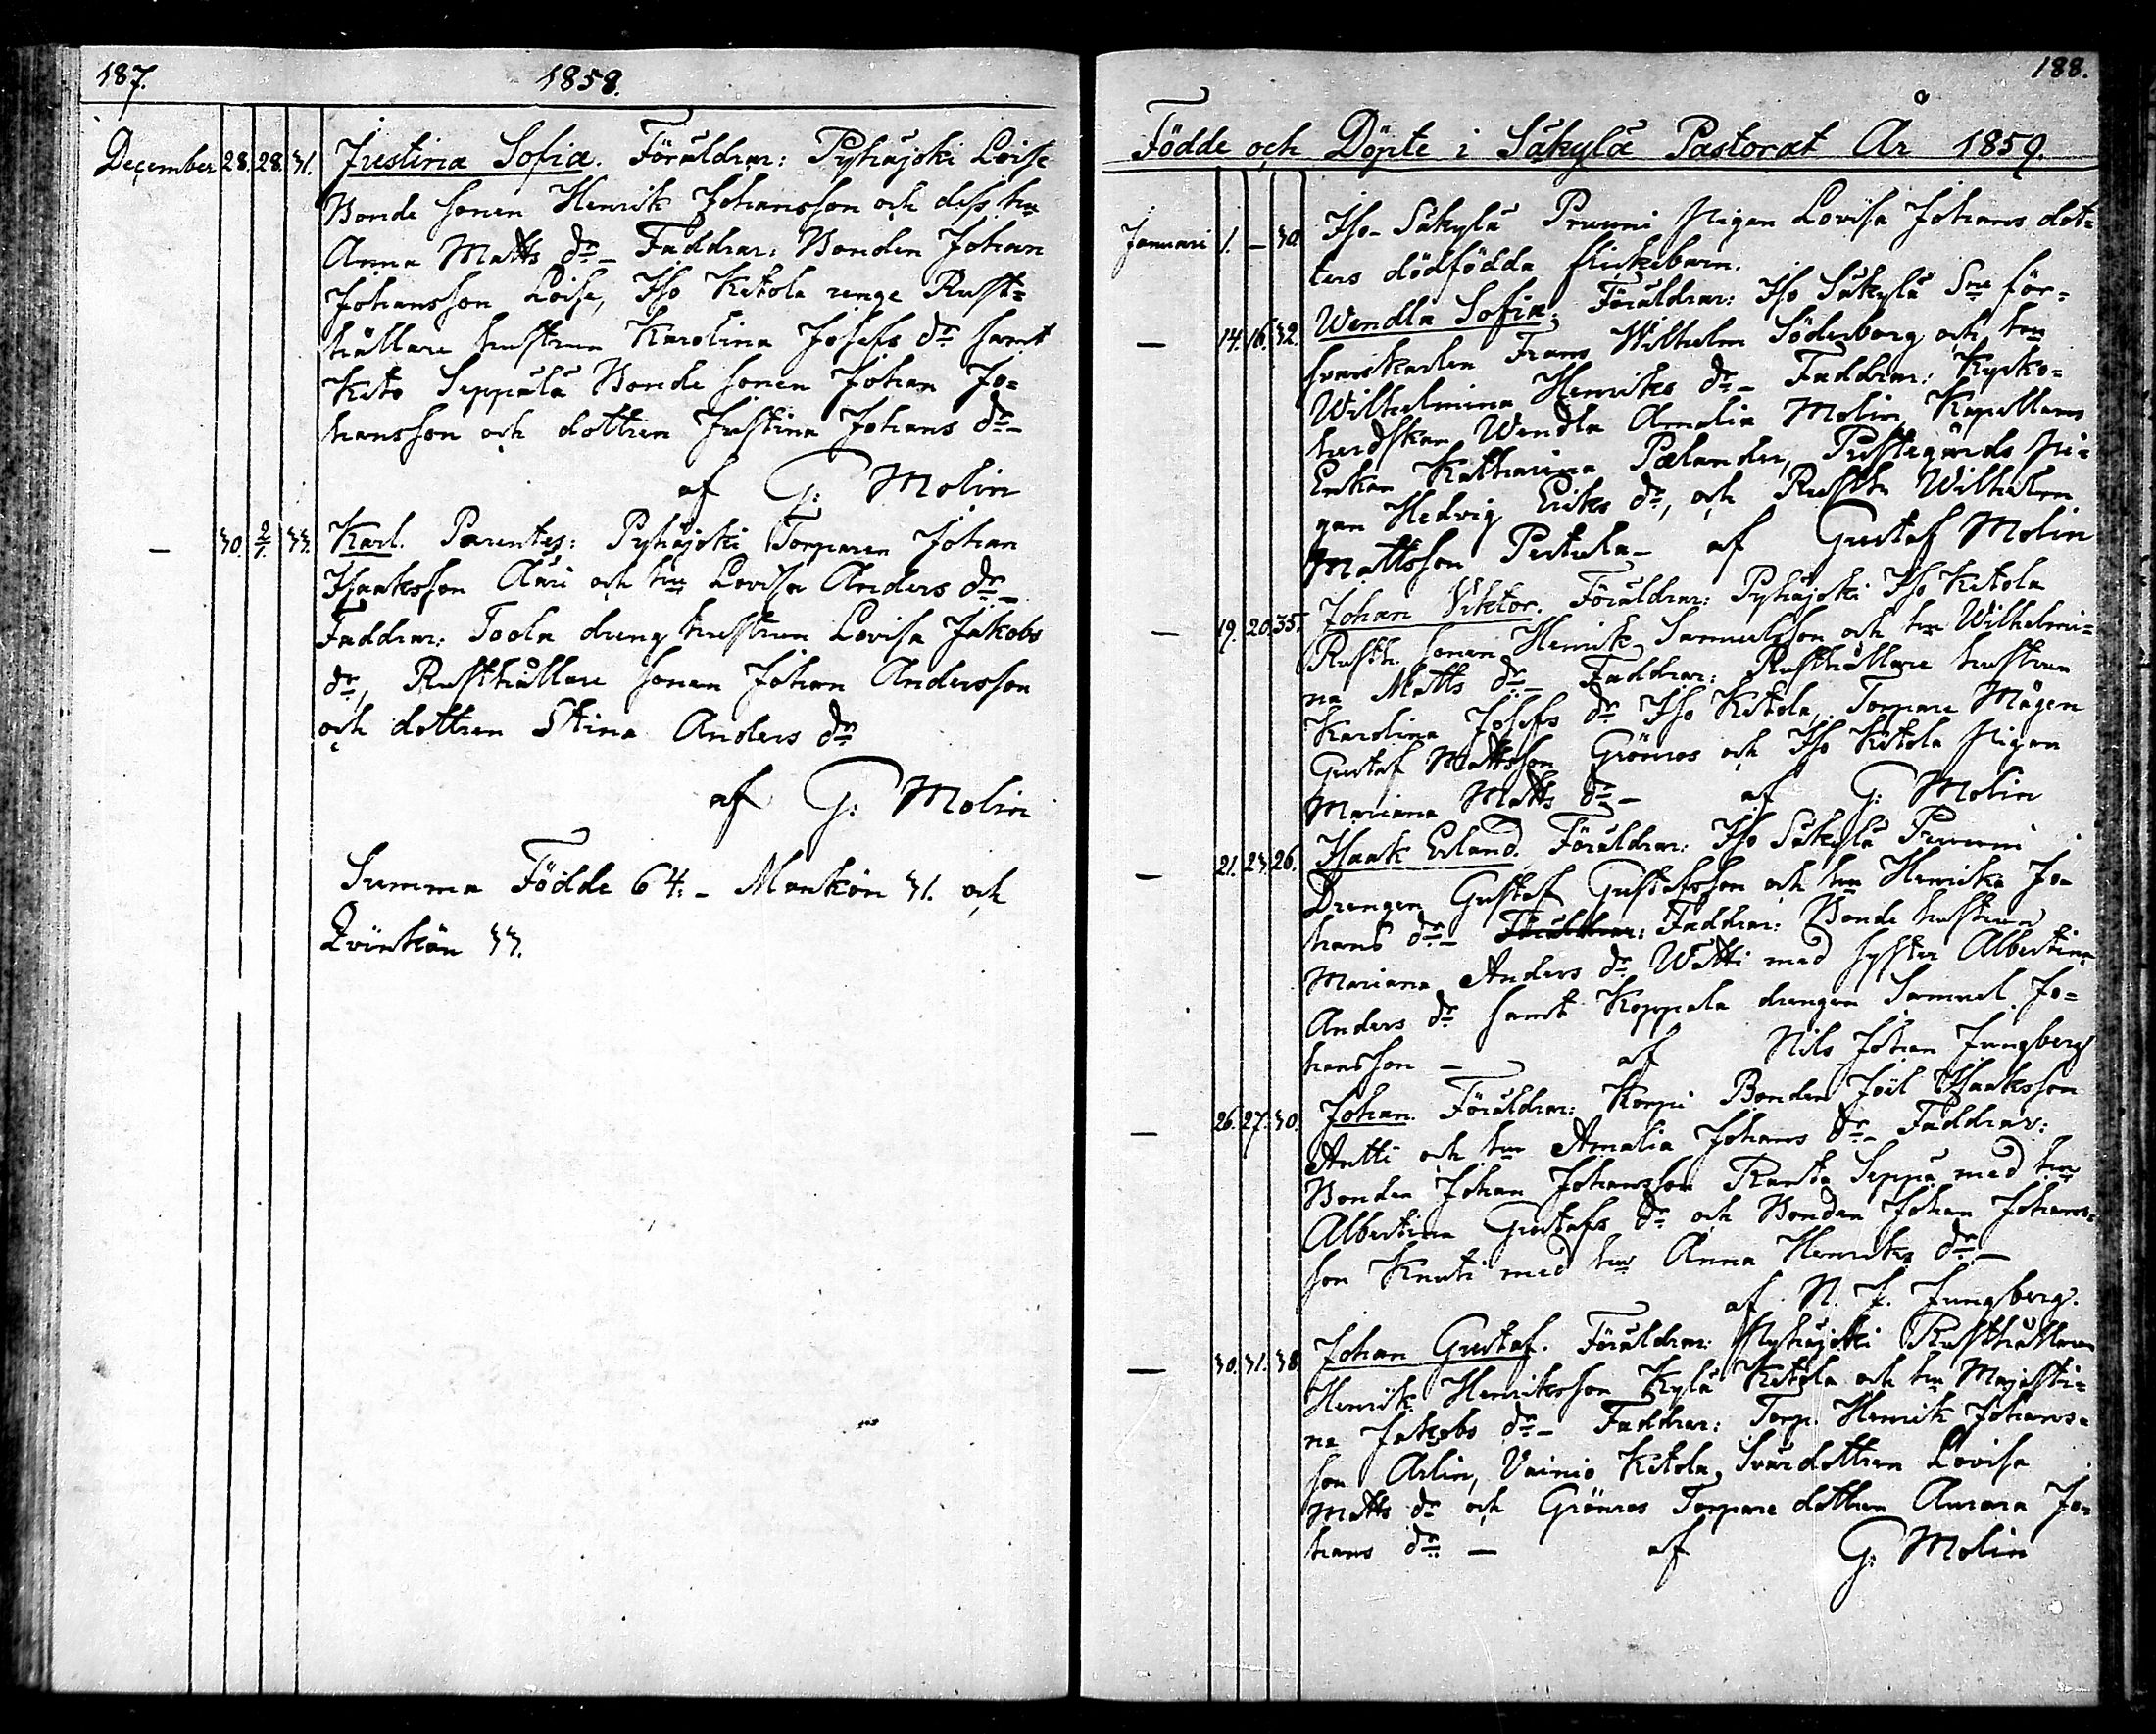 187. 1858.
December 28. 28. 31. Justina Sofia. Föräldrar: Pyhäjoki Loise
Bonde sonen Henrik Johansson och dess hu
Anna Matts dr – Faddrar: Bonden Johan
Johansson Loise, Iso Ketola unge Rust=
hållare hustrun Karolina Josefs dr samt
Keto Seppälä Bonde sonen Johan Jo=
hansson och dottren Justina Johans dr –
af G: Molin
– 30. 2/1. 33. Karl. Parentes: Pyhäjoki Torparen Johan
Isaaksson Aüri och hu Lovisa Anders dr –
Faddrar: Toola dreng hustrun Lovisa Jakobs
dr, Rusthållare sonen Johan Andersson
och dottren Stina Anders dr
af G: Molin
Summa Födde 64: – Mankön 31. och
Qvinkön 33.
188.
Födde och Döpte i Säkylä Pastorat År 1859.
Januari 1. – 30. Iso-Säkylä Prunni Pigan Lovisa Johans dot=
ters dödfödda flickebarn.
– 14. 16. 32. Wendla Sofia; Föräldrar: Iso Säkylä Sne för=
svarskarlen Frans Wilhelm Söderborg och hu
Wilhelmina Henriks dr – Faddrar: Kyrko=
herdskan Wendla Amalia Molin, Kapellans
Enkan Katharina Palander, Prestegårds Pi=
gan Hedvig Eriks dr, och Rusth. Wilhelm
Mattsson Pertula – af Gustaf Molin
– 19. 20. 35. Johan Viktor. Föräldrar: Pyhäjoki Iso Ketola
Rusth. sonen Henrik Samuelsson och hu Wilhelmi=
na Matts dr – Faddrar: Rusthållare hustrun
Karolina Josefs dr Iso Ketola, Torpare Mågen
Gustaf Mattsson Grönros och Iso Ketola Pigan
Mariana Matts dr – af G: Molin
– 21. 23. 26. Isaak Erland. Föräldrar: Iso Säkylä Prunni
Drengen Gustaf Gustafsson och hu Henrika Jo=
hans dr – Föräldrar: Faddrar: Bonde hustrun
Mariana Anders dr Witti med syster Albertina
Anders dr samt Koppala drengen Samuel Jo=
hansson – af Nils Johan Jungberg
– 26. 27. 30. Johan. Föräldrar: Korpi Bonden Joël Isaaksson
Antti och hu Amalia Johans dr – Faddrar:
Bonden Johan Johansson Ranta Seppä med hu
Albertina Gustafs dr och Bonden Johan Johans=
son Knuti med hu Anna Henriks dr –
af N. J. Jungberg.
– 30. 31. 38. Johan Gustaf. Föräldrar: Pyhäjoki Rusthållaren
Henrik Henriksson Kylä Ketola och hu Majasti=
na Jakobs dr – Faddrar: Torp. Henrik Johans=
son Arlin, Vainio Ketola Svärdottren Lovisa
Matts dr och Grönros Torpare dottren Aurora Jo=
hans dr – af G: Molin